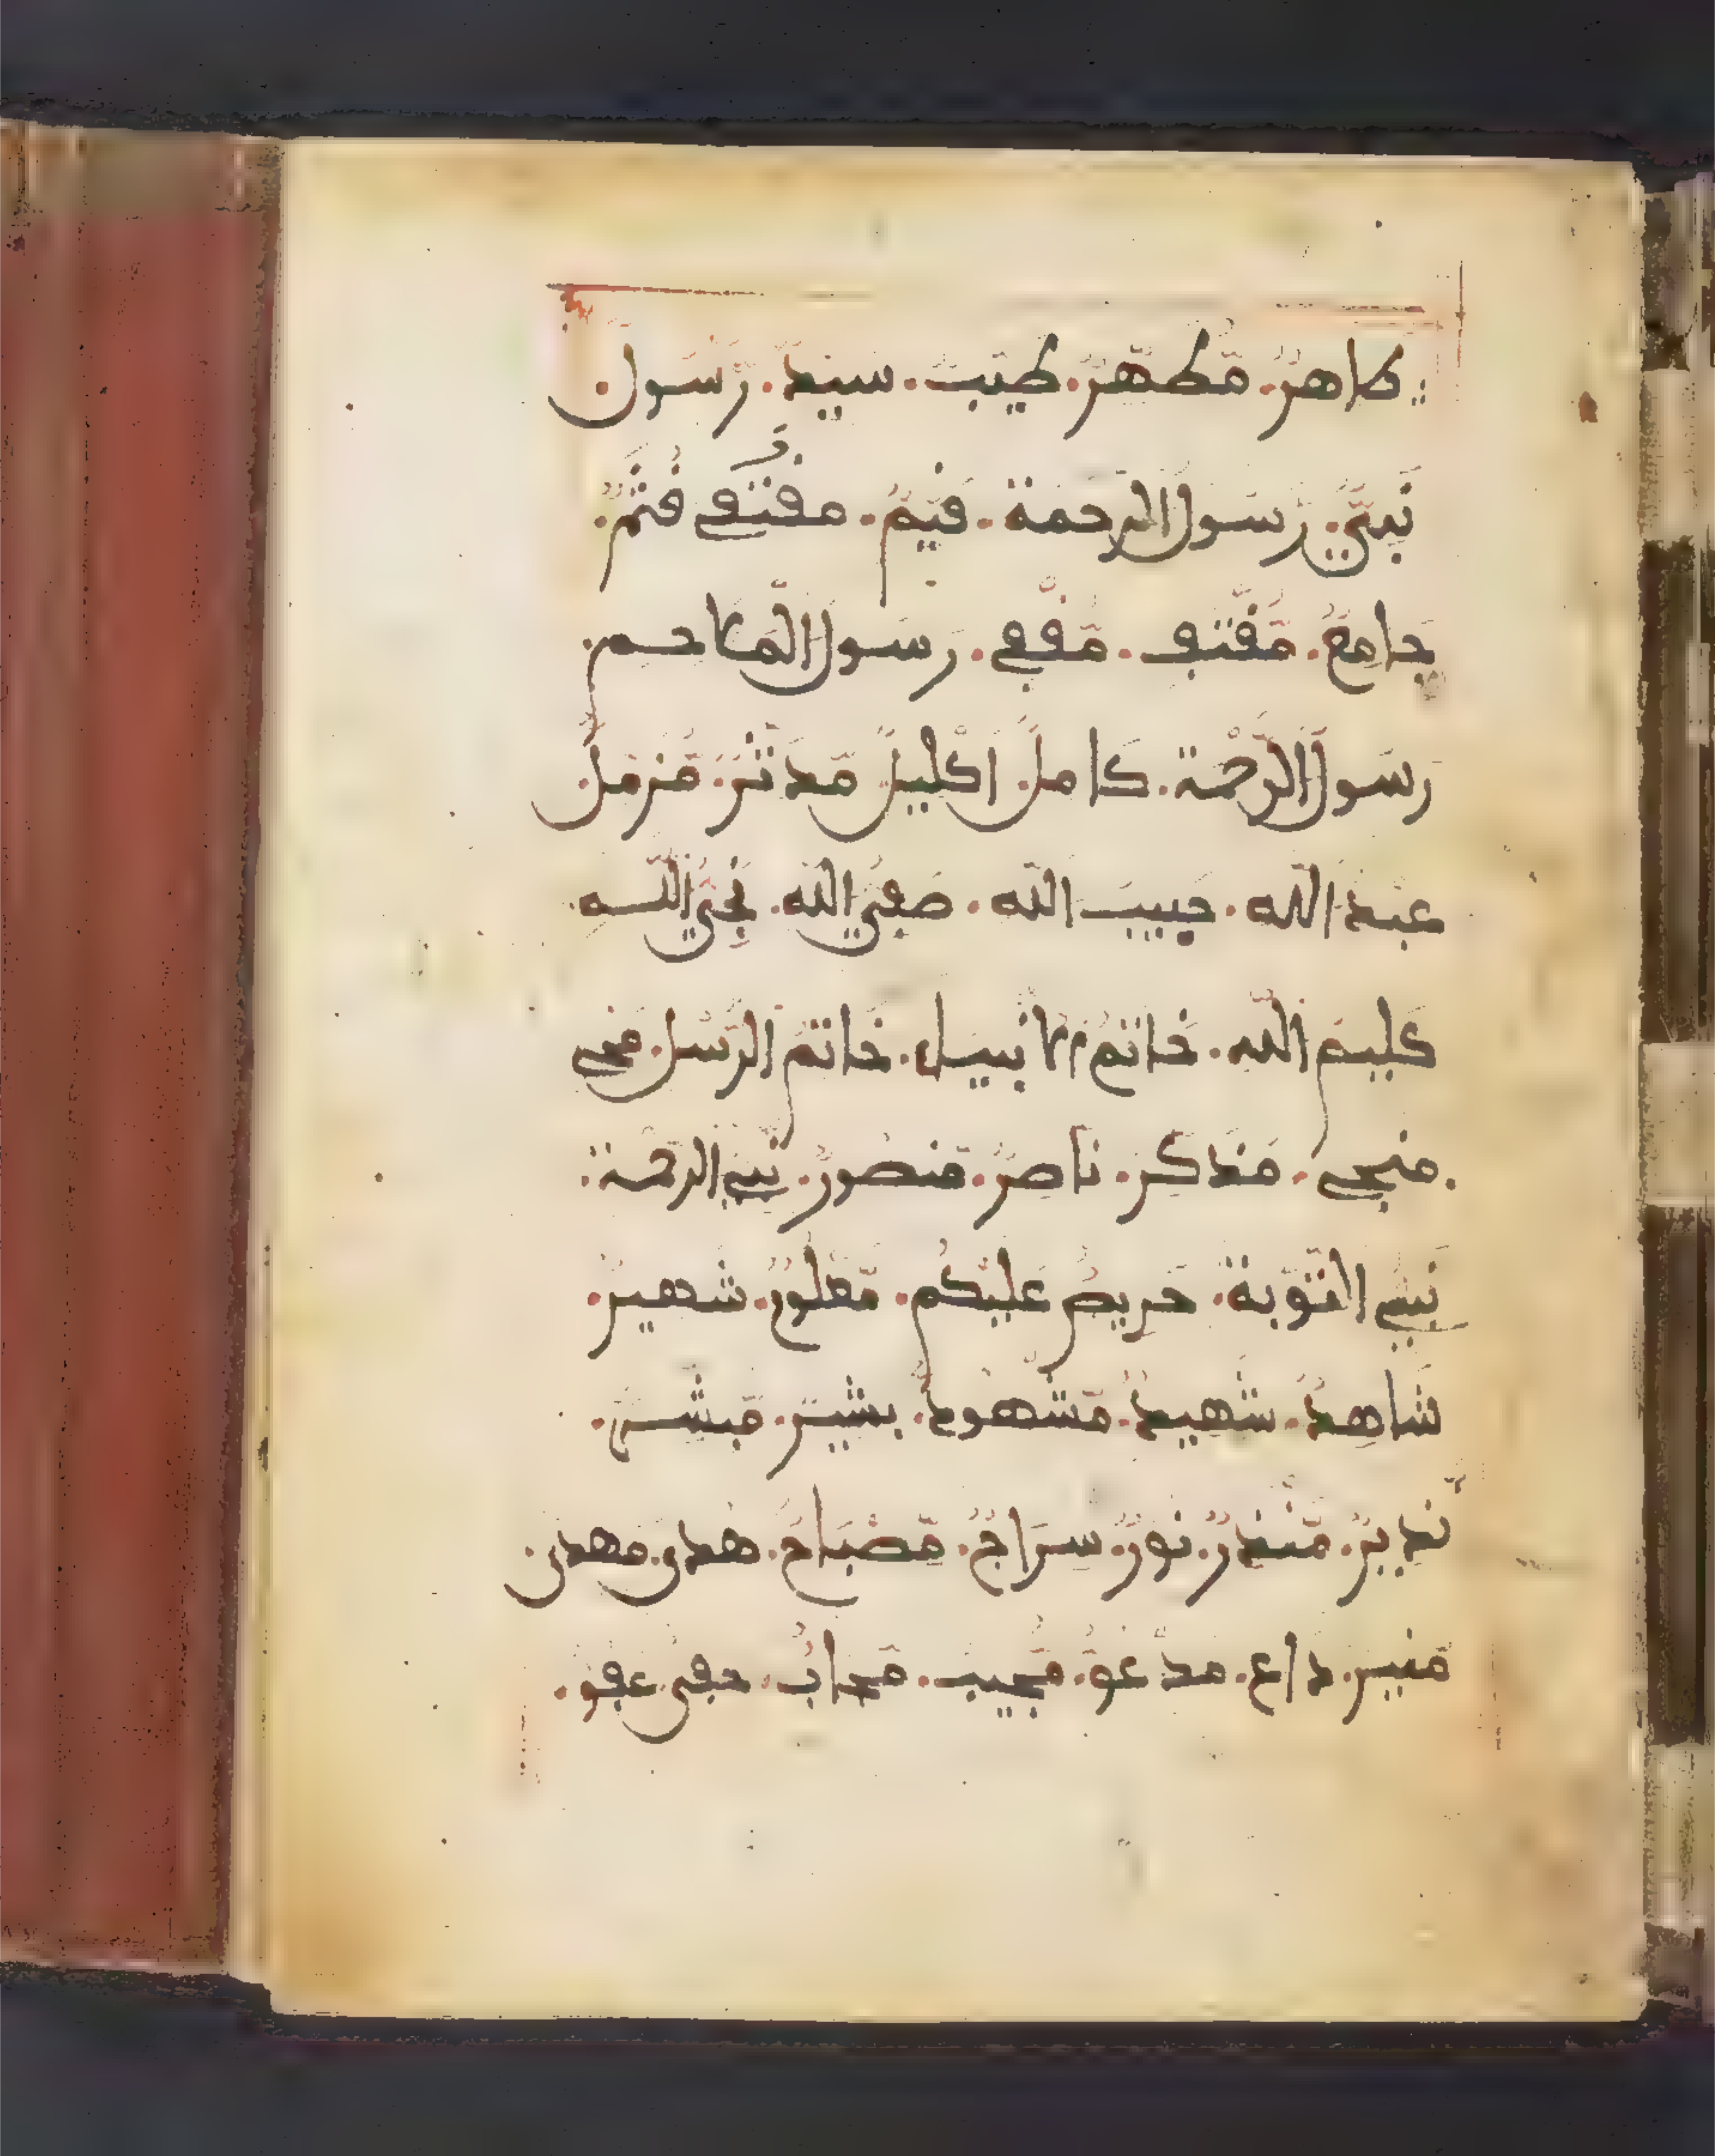 طاهرٌ. مّطهّرٌ. طيّب. سيّدٌ. رّسول.
نّبيّ. رّسول الرحمة. قيّمٌ. مقتفي قثمٌ.
جامعٌ. مّقتف. مّقفي. رسول الملاحم.
رسول الرّحمة. كامل. اكليلٌ مّدثرٌ. مّزمّلٌ.
عبد الله. حبيب الله. صفيّ الله. نجيّ الله.
كليم الله. خاتم الانبياء. خاتم الرّسل. محي
منجي. مذكر. ناصرٌ. مّنصورٌ. نبي الرحمة.
نبي التّوبة. حريص عليكم. مّعلومٌ. شهيرٌ.
شاهدٌ. شهيدٌ. مّشهودٌ. بشيرٌ. مّبشرٌ.
نّذيرٌ. مّنذرٌ. نورٌ. سراجٌ. مّصباحٌ. هدى. مهدي.
مّنير. داع. مدعوّ. مّجيب. مّجابٌ. حفي. عفو.